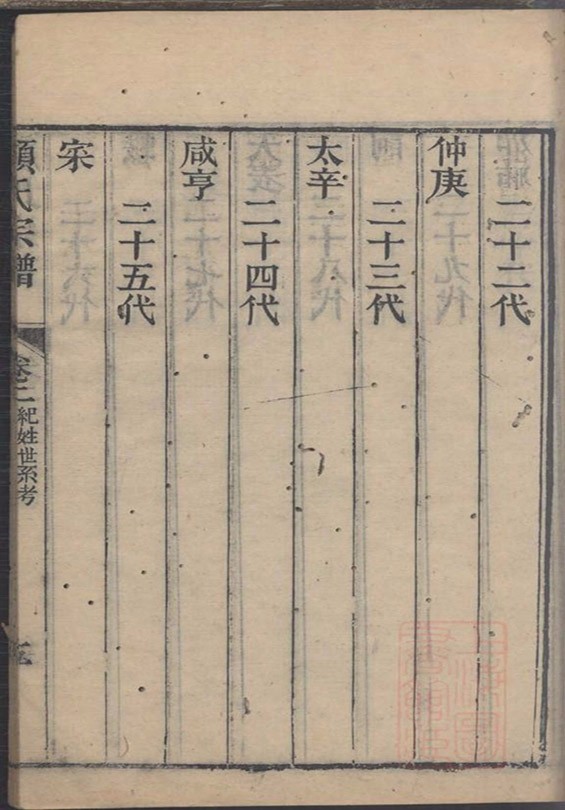 二十二代
仲庚
二十三代
太辛
二十四代
咸亨
二十五代
寀
項氏宗譜
卷二
紀姓世系考